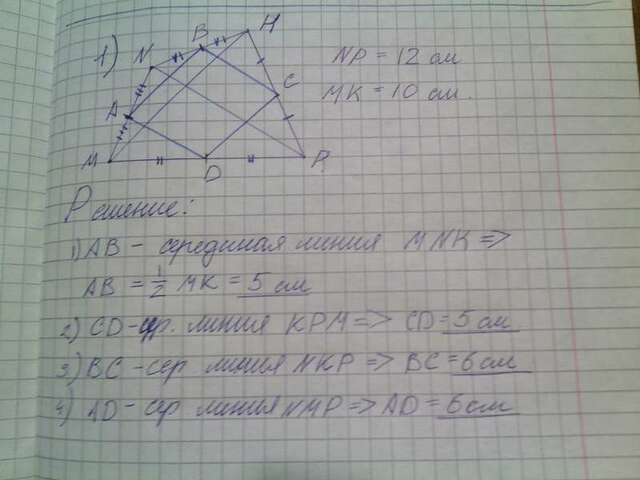 1)
N
B
H
A
C
M
D
P
NP = 12 см
MK = 10 см.
Решение:
1) AB – серединая линия MNK =>
AB = 1/2 MK = 5 см
2) CD – ср. линия KPM => CD = 5 см
3) BC – сер линия NKP => BC = 6 см
4) AD – сер линия NMP => AD = 6 см